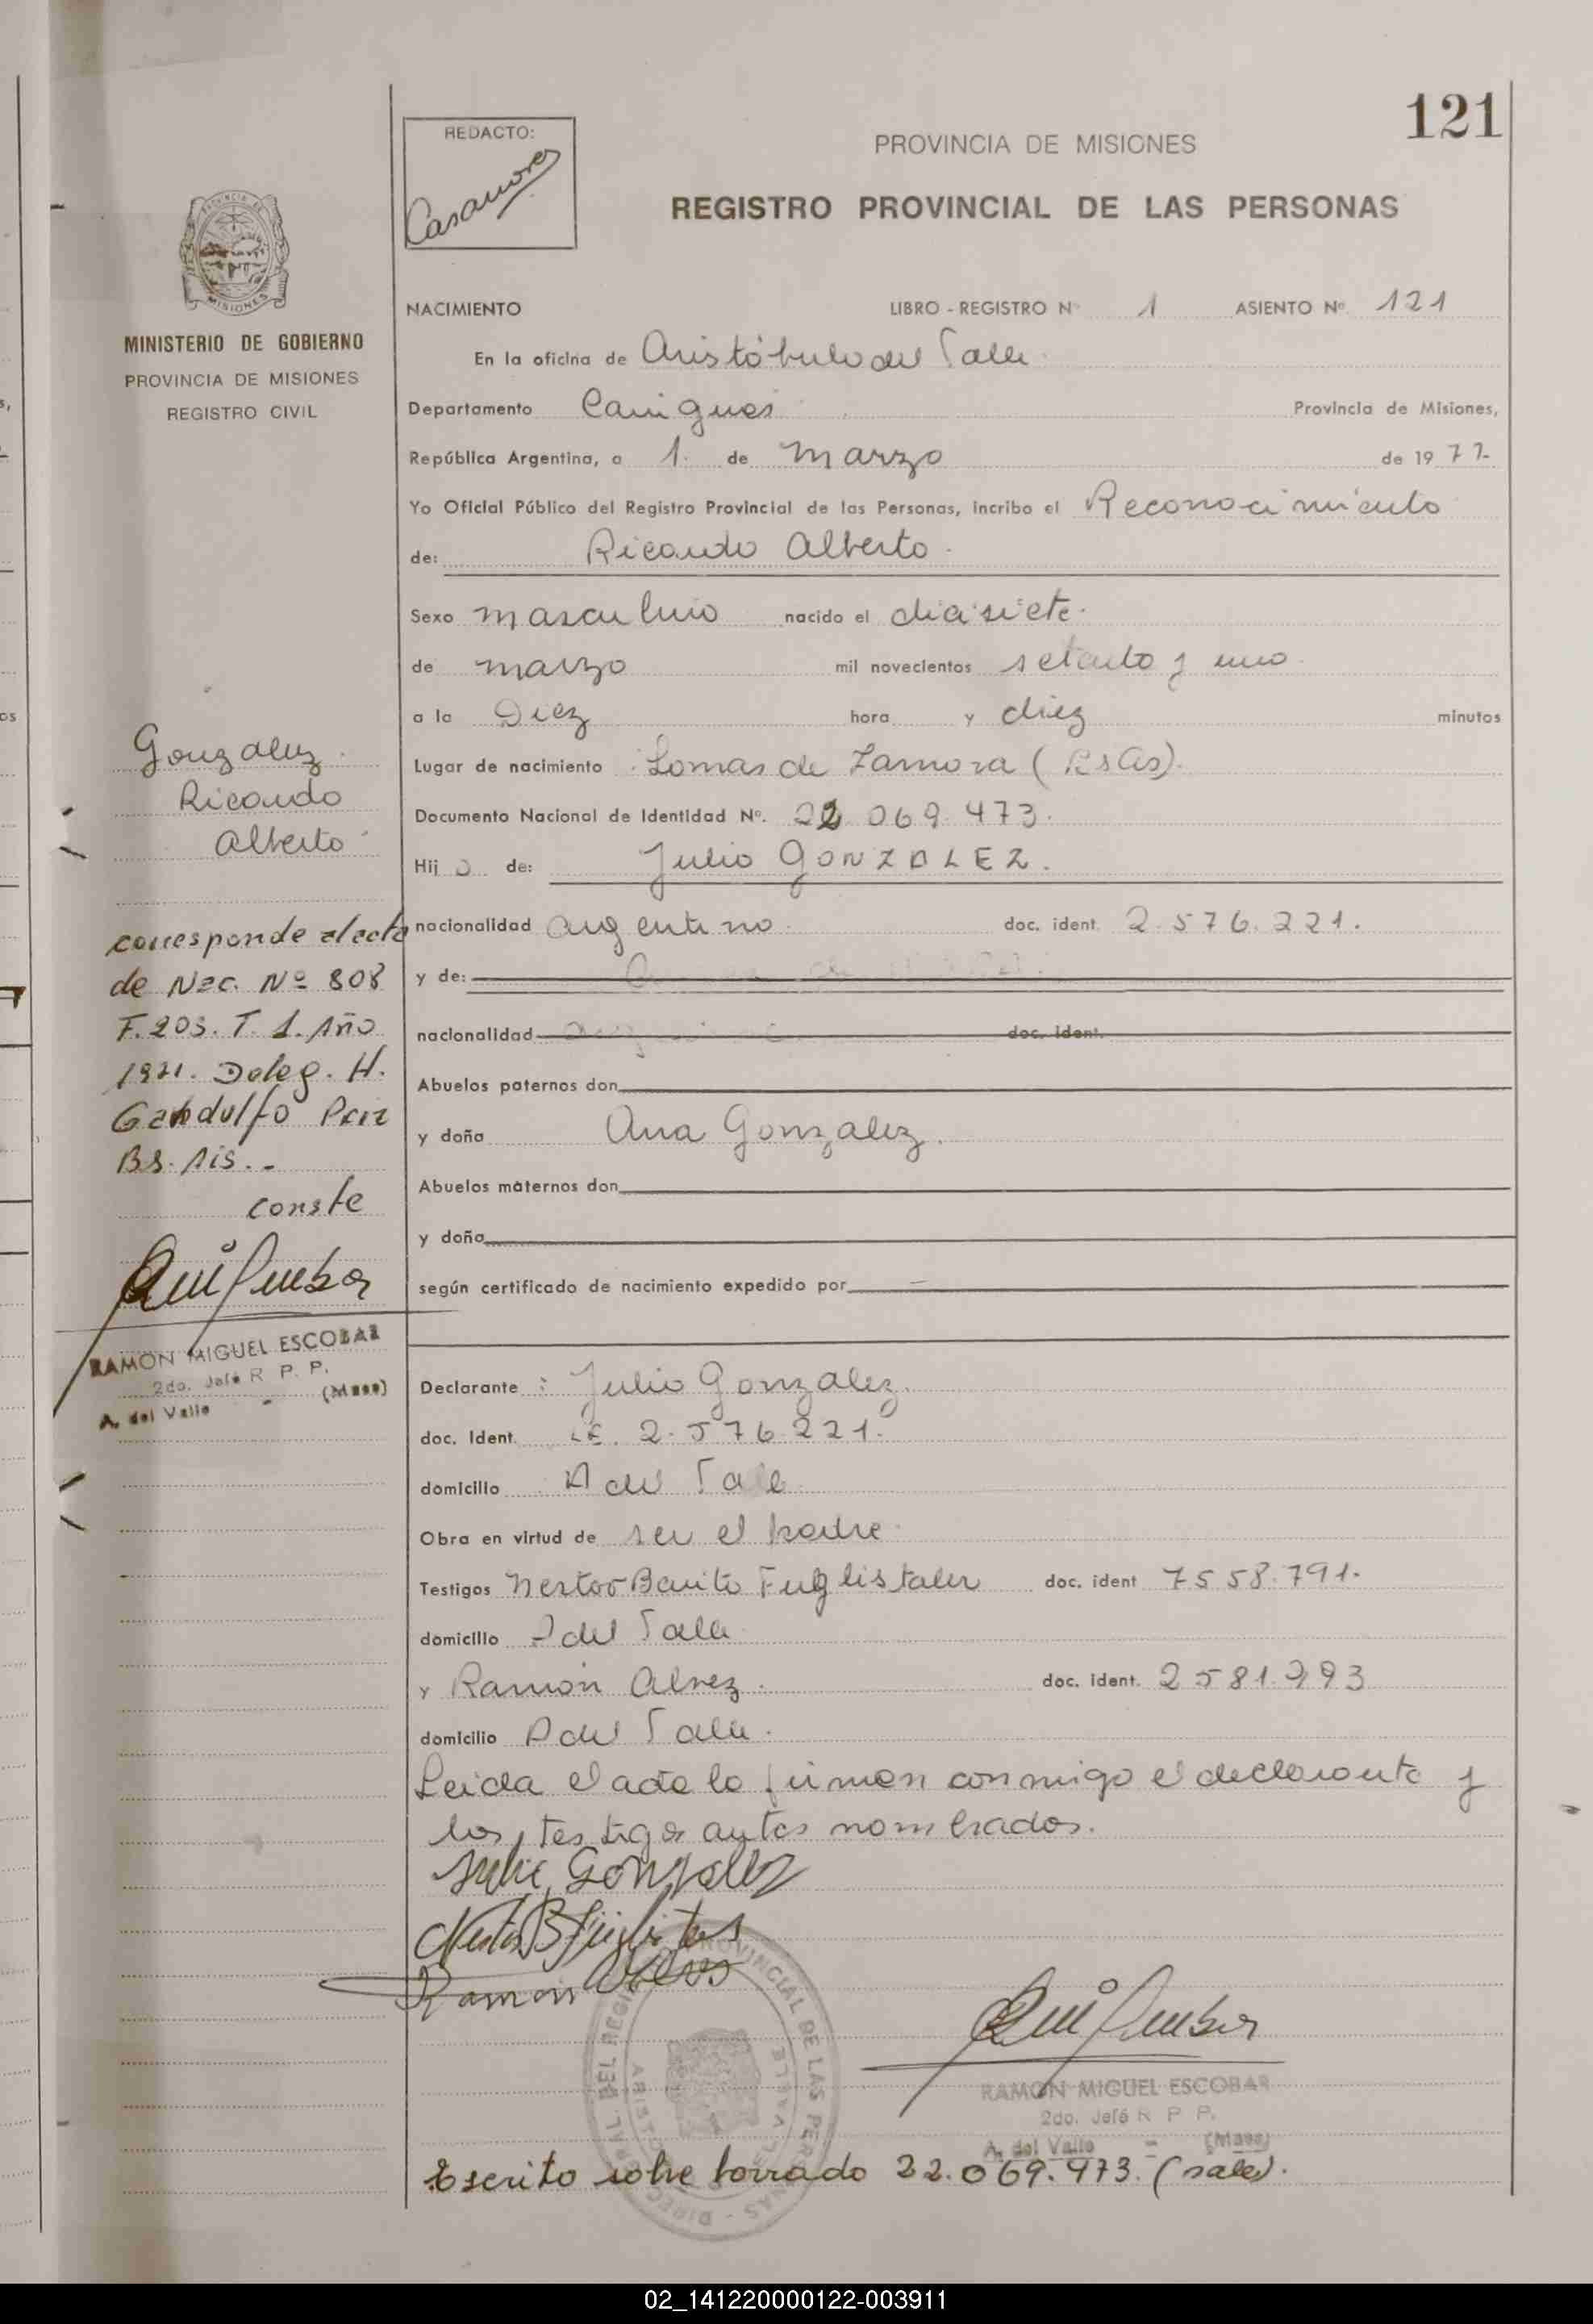 121
REDACTO:
Casanova
PROVINCIA DE MISIONES
REGISTRO PROVINCIAL DE LAS PERSONAS
PROVINCIA DE
MISIONES
MINISTERIO DE GOBIERNO
PROVINCIA DE MISIONES
REGISTRO CIVIL
Gonzalez
Ricardo
Alberto
corresponde al acta
de Nac. Nº 808
F. 203. T. 1. Año
1971. Deleg. H.
Gandulfo Pcia
Bs. Ais. -
conste
RAMON MIGUEL ESCOBAR
2do. Jefe R P. P.
A. del Valle - (Mnes)
NACIMIENTO LIBRO - REGISTRO Nº 1 ASIENTO Nº 121
En la oficina de Aristóbulo del Valle
Departamento Cainguas Provincia de Misiones,
República Argentina, a 1. de Marzo de 1977-
Yo Oficial Público del Registro Provincial de las Personas, incribo el Reconocimiento
de: Ricardo Alberto -
Sexo masculino nacido el dia siete.
de marzo mil novecientos setenta y uno
a la Diez hora y diez minutos
Lugar de nacimiento Lomas de Zamora (Bs As).
Documento Nacional de Identidad Nº. 22 069.473.
Hij o de: Julio GONZALEZ.
nacionalidad argentino doc. ident. 2.576.221.
y de:
nacionalidad doc. ident.
Abuelos paternos don
y doña Ana Gonzalez.
Abuelos maternos don
y doña
según certificado de nacimiento expedido por
Declarante : Julio Gonzalez.
doc. Ident. LE. 2.576.221.
domicilio A del Valle
Obra en virtud de ser el padre.
Testigos Nestor Benito Fuglistaler doc. ident 7558.791.
domicilio A del Valle
y Ramón Alvez. doc. ident. 2581.293
domicilio A del Valle.
Leida el acta lo firman conmigo el declarante y
los testigos antes nombrados.
Julio Gonzalez
Ramon Alves
RAMON MIGUEL ESCOBAR
2do. Jefe R P P.
A. del Valle - (Mnes)
Escrito sobre borrado 22.069.473. (vale).
02_141220000122-003911